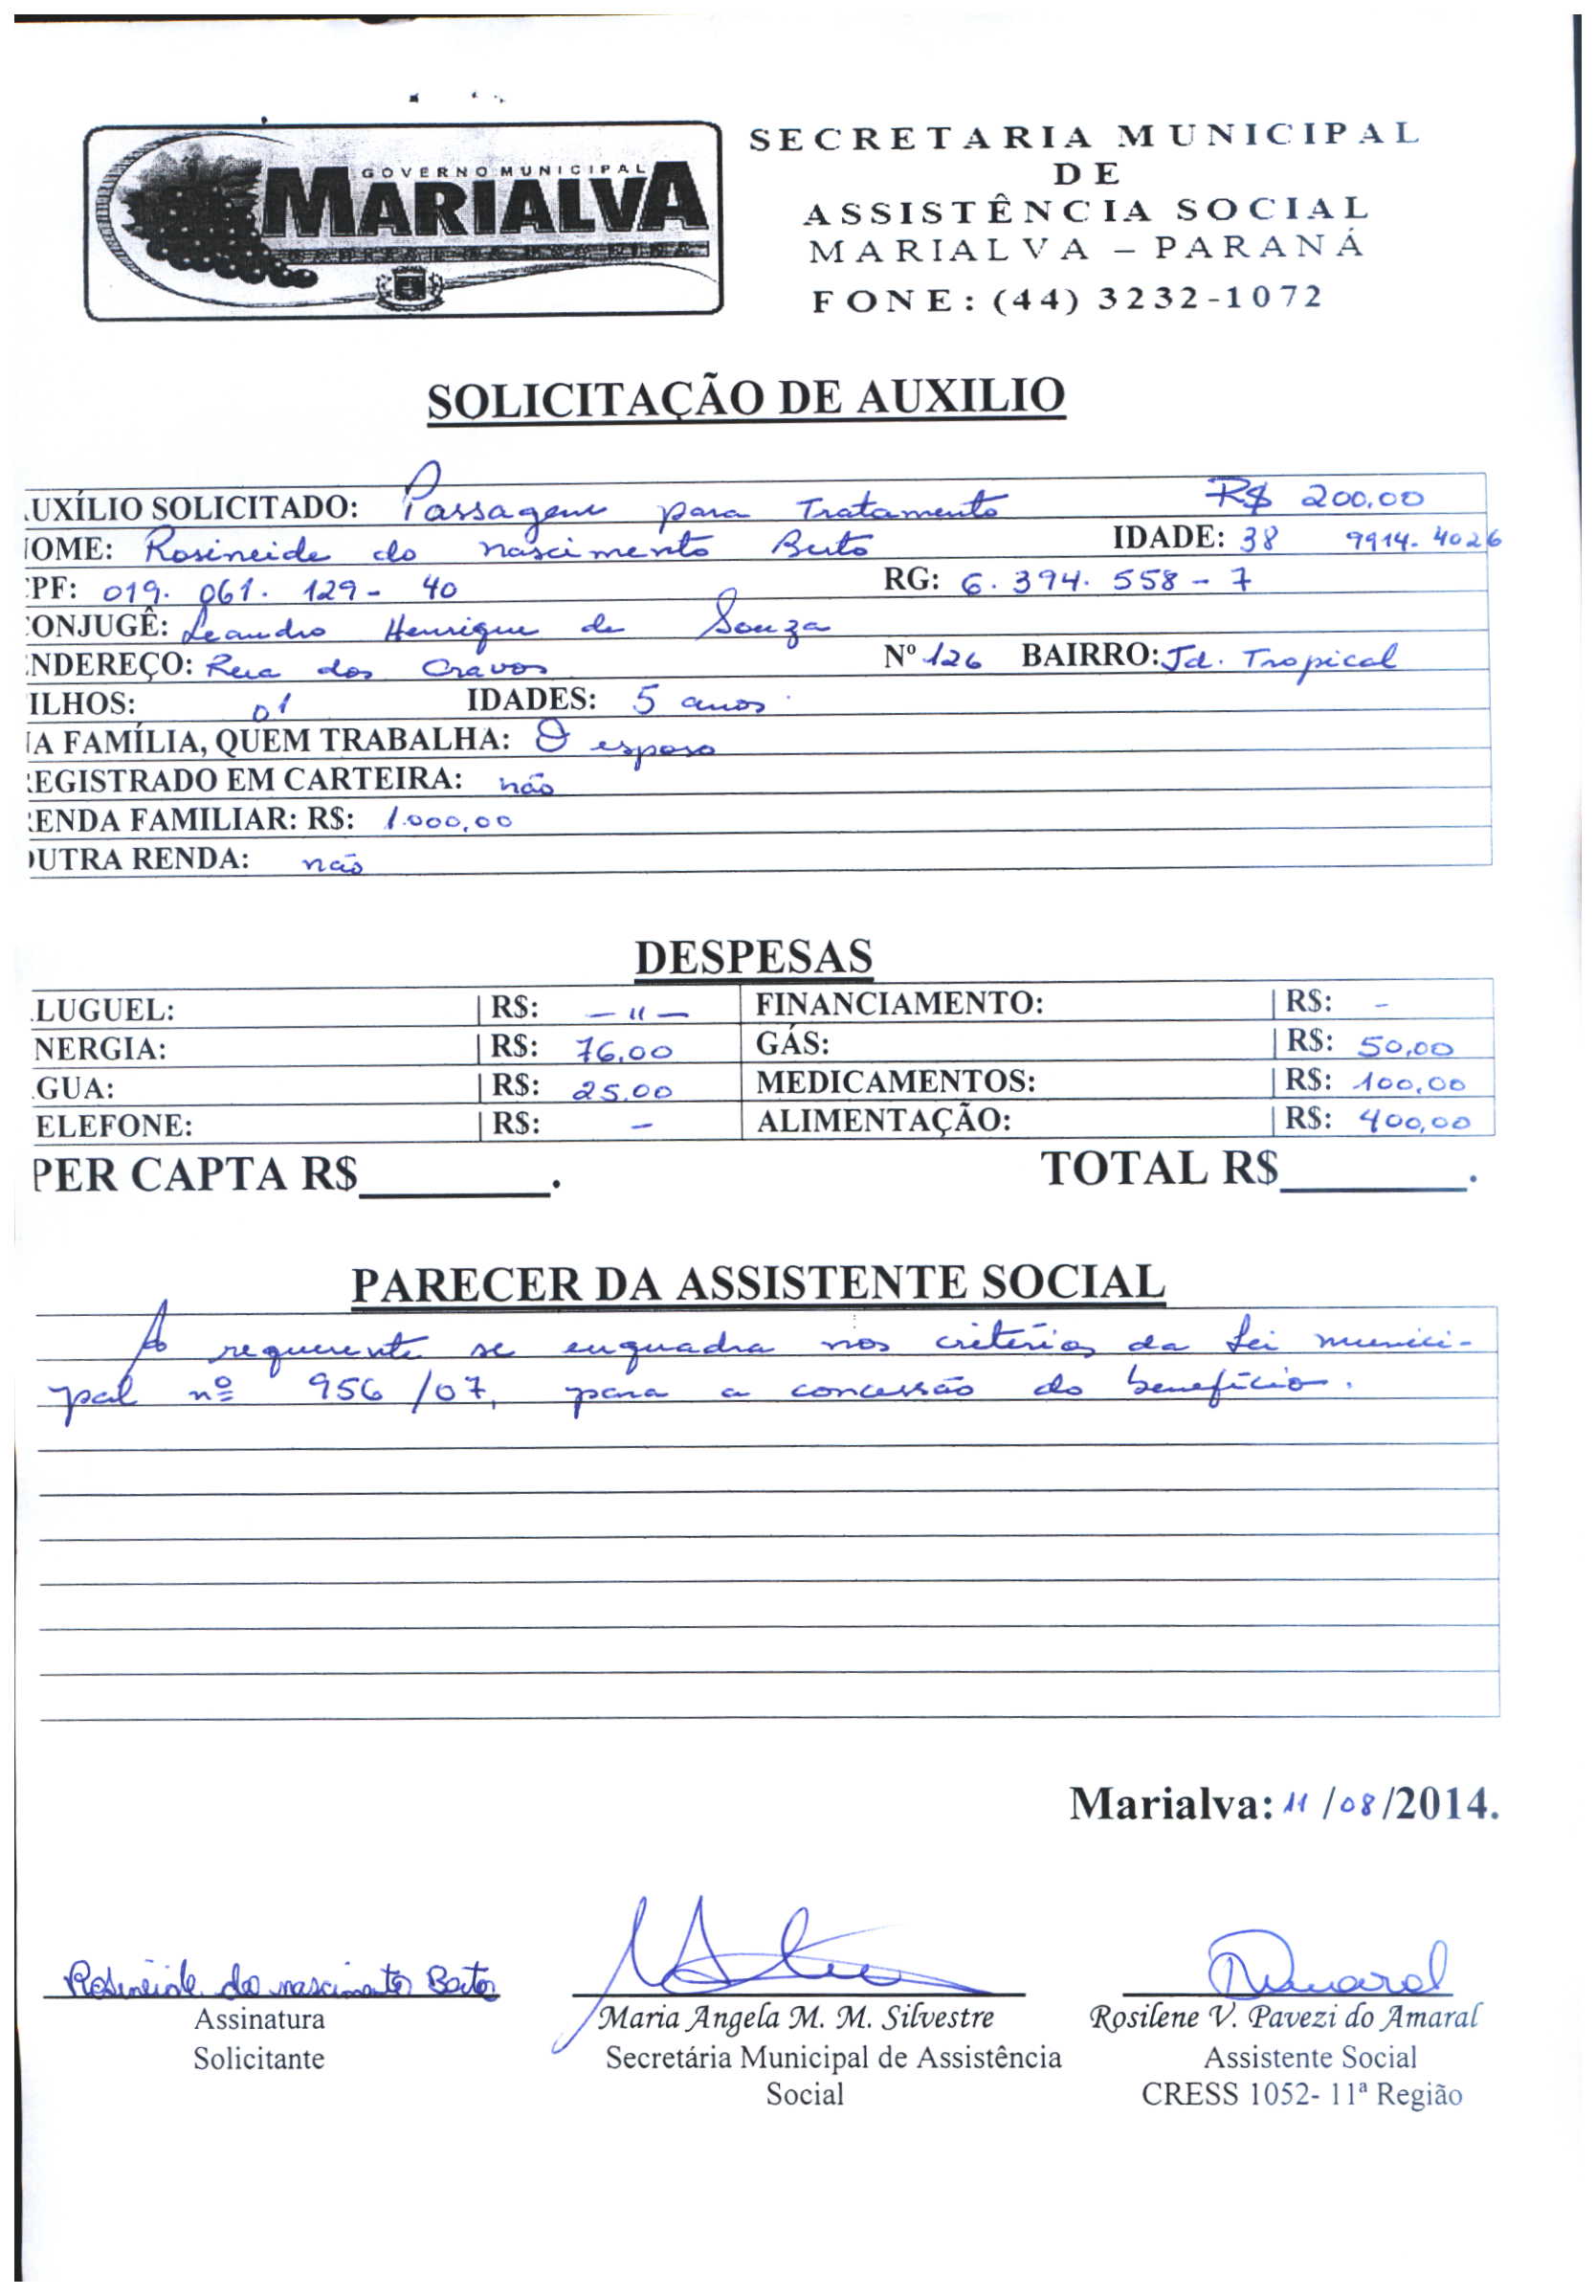 GOVERNO MUNICIPAL
MARIALVA
SECRETARIA MUNICIPAL
DE
ASSISTÊNCIA SOCIAL
MARIALVA – PARANÁ
FONE: (44) 3232-1072
SOLICITAÇÃO DE AUXILIO
UXÍLIO SOLICITADO: Passagem para Tratamento R$ 200,00
OME: Rosineide do nascimento Beto IDADE: 38 9914-4026
PF: 019.061.129-40 RG: 6.394.558-7
ONJUGÊ: Leandro Henrique de Souza
NDEREÇO: Rua dos Cravos Nº 126 BAIRRO: Jd. Tropical
ILHOS: 01 IDADES: 5 anos
A FAMÍLIA, QUEM TRABALHA: O esposo
EGISTRADO EM CARTEIRA: não
ENDA FAMILIAR: R$: 1.000,00
UTRA RENDA: não
DESPESAS
LUGUEL: R$: — " — FINANCIAMENTO: R$: -
NERGIA: R$: 76,00 GÁS: R$: 50,00
GUA: R$: 25,00 MEDICAMENTOS: R$: 100,00
ELEFONE: R$: - ALIMENTAÇÃO: R$: 400,00
PER CAPTA R$________. TOTAL R$________.
PARECER DA ASSISTENTE SOCIAL
A requerente se enquadra nos critérios da Lei munici-
pal nº 956/07, para a concessão do benefício.
Marialva: 11/08/2014.
Rosineide do nascimento
Assinatura
Solicitante
Maria Angela M. M. Silvestre
Secretária Municipal de Assistência
Social
Rosilene V. Pavezi do Amaral
Assistente Social
CRESS 1052- 11ª Região